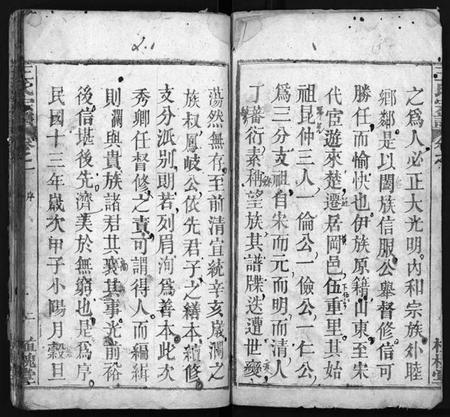 之爲人必正大光明內和宗族外睦
鄉鄰是以閤族信服公舉督修信可
勝任而愉快也伊族原籍山東至宋
代宦遊來楚遷居岡邑伍重里其始
祖昆仲三人一倫公一儉公一仁公
爲三分支祖自宋而元而明而清人
丁蕃衍素稱望族其譜牒迭遭世變
蕩然無存至前清宣統辛亥歲瀾之
族叔鳳岐公依先君子之繕本續修
支分派别朗若列眉洵爲善本此次
秀卿任督修之責可謂得人而編緝
則瀾與貴族諸君共襄其事光前裕
後信堪後先濟美於無窮也是爲序
民國十三年歲次甲子小陽月穀旦
序
2.1